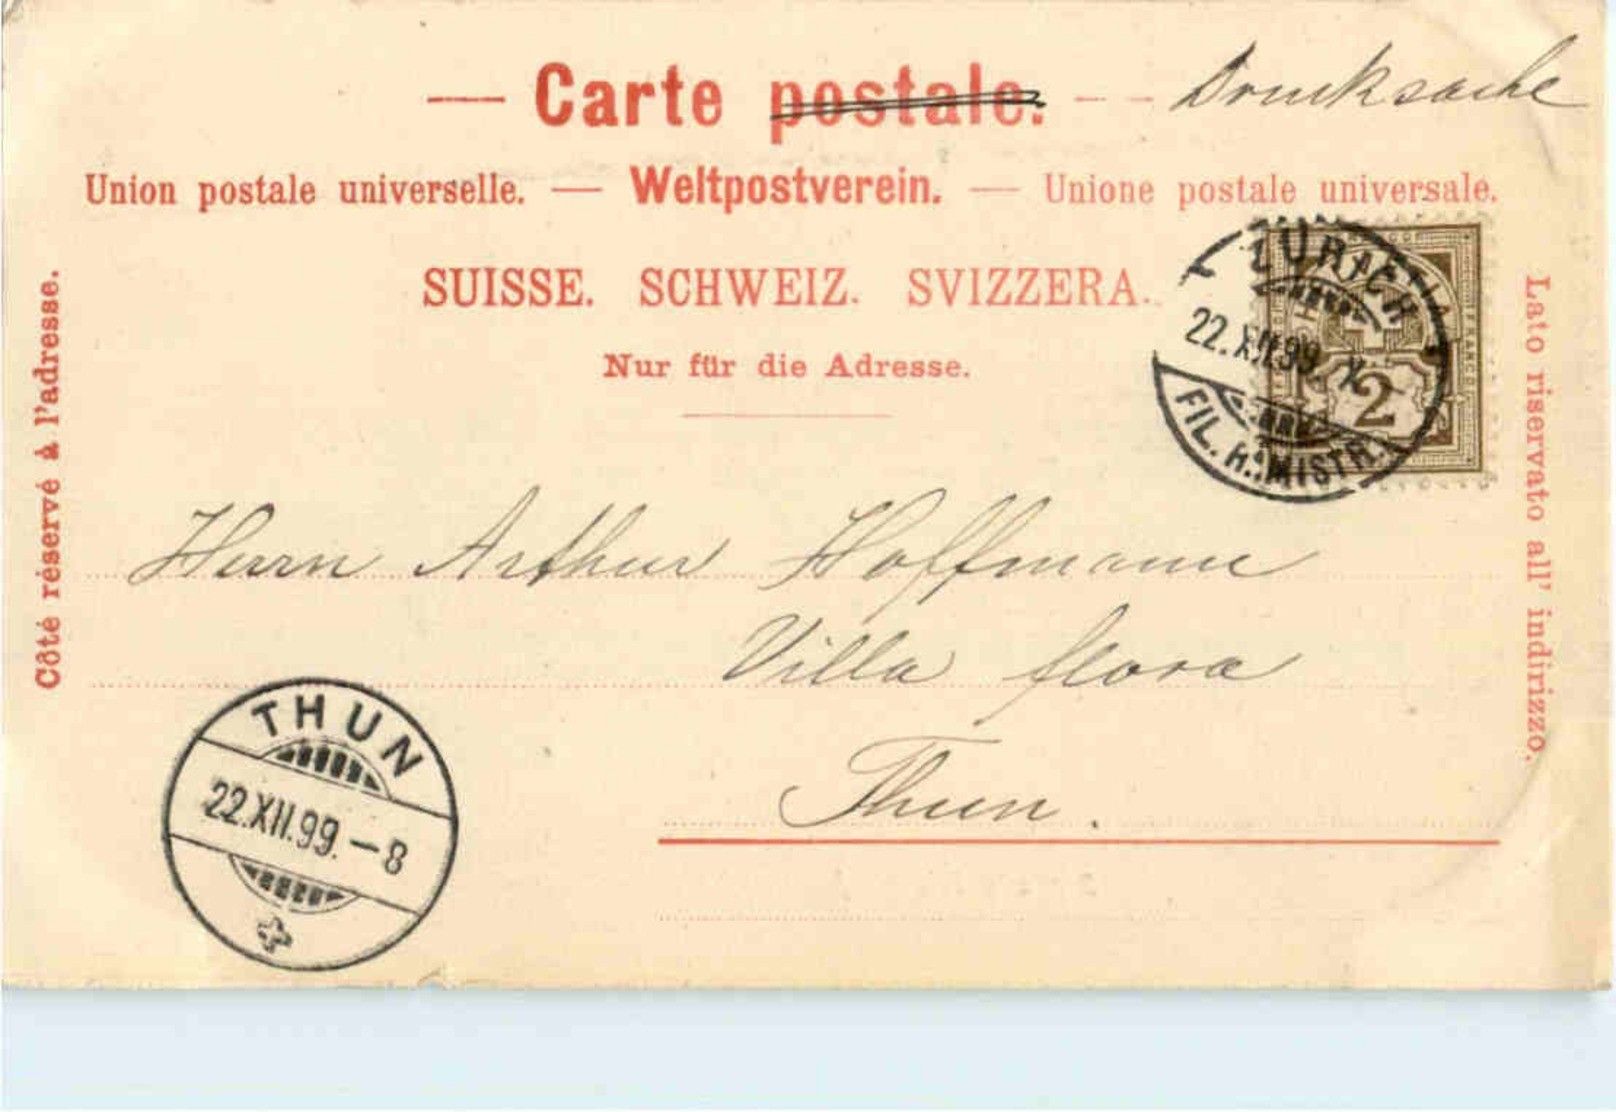 — Carte postale. - - Drucksache
Union postale universelle. — Weltpostverein. — Unione postale universale.
SUISSE. SCHWEIZ. SVIZZERA.
Nur für die Adresse.
Côté réservé à l'adresse.
Lato riservato all' indirizzo.
ZÜRICH
22.XII.99. X
FIL. H. MISTR.
FRANCO
2
Herrn Arthur Hoffmann
Villa flora
Thun.
THUN
22.XII.99. — 8